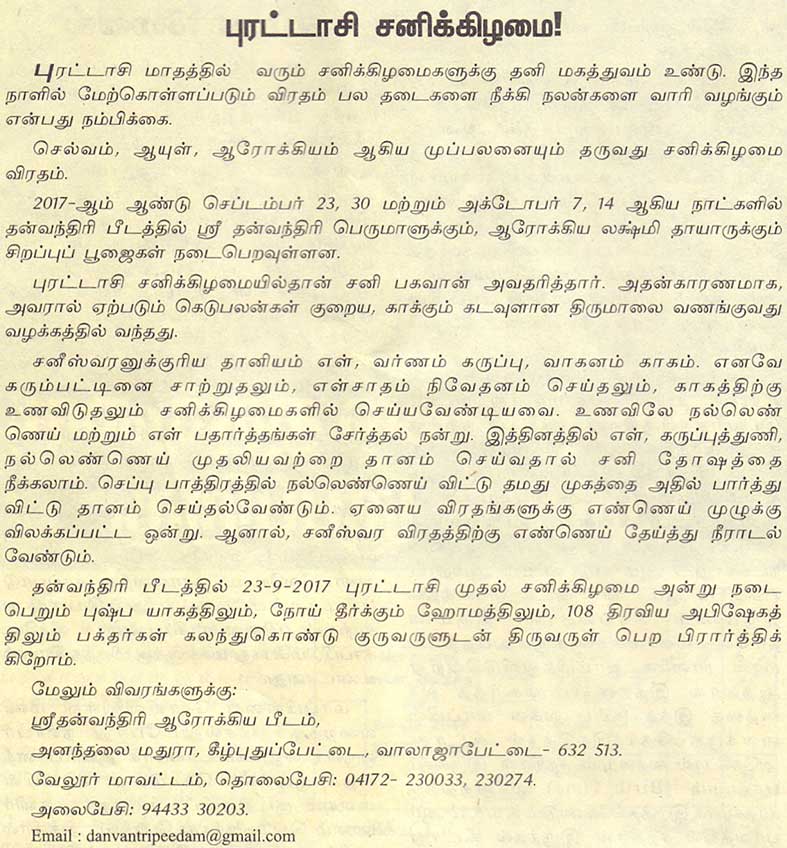 புரட்டாசி சனிக்கிழமை!
புரட்டாசி மாதத்தில் வரும் சனிக்கிழமைகளுக்கு தனி மகத்துவம் உண்டு. இந்த
நாளில் மேற்கொள்ளப்படும் விரதம் பல தடைகளை நீக்கி நலன்களை வாரி வழங்கும்
என்பது நம்பிக்கை.
செல்வம், ஆயுள், ஆரோக்கியம் ஆகிய முப்பலனையும் தருவது சனிக்கிழமை
விரதம்.
2017-ஆம் ஆண்டு செப்டம்பர் 23, 30 மற்றும் அக்டோபர் 7, 14 ஆகிய நாட்களில்
தன்வந்திரி பீடத்தில் ஸ்ரீ தன்வந்திரி பெருமாளுக்கும், ஆரோக்கிய லக்ஷ்மி தாயாருக்கும்
சிறப்புப் பூஜைகள் நடைபெறவுள்ளன.
புரட்டாசி சனிக்கிழமையில்தான் சனி பகவான் அவதரித்தார். அதன்காரணமாக,
அவரால் ஏற்படும் கெடுபலன்கள் குறைய, காக்கும் கடவுளான திருமாலை வணங்குவது
வழக்கத்தில் வந்தது.
சனீஸ்வரனுக்குரிய தானியம் எள், வர்ணம் கருப்பு, வாகனம் காகம். எனவே
கரும்பட்டினை சாற்றுதலும், எள்சாதம் நிவேதனம் செய்தலும், காகத்திற்கு
உணவிடுதலும் சனிக்கிழமைகளில் செய்யவேண்டியவை. உணவிலே நல்லெண்
ணெய் மற்றும் எள் பதார்த்தங்கள் சேர்த்தல் நன்று. இத்தினத்தில் எள், கருப்புத்துணி,
நல்லெண்ணெய் முதலியவற்றை தானம் செய்வதால் சனி தோஷத்தை
நீக்கலாம். செப்பு பாத்திரத்தில் நல்லெண்ணெய் விட்டு தமது முகத்தை அதில் பார்த்து
விட்டு தானம் செய்தல்வேண்டும். ஏனைய விரதங்களுக்கு எண்ணெய் முழுக்கு
விலக்கப்பட்ட ஒன்று. ஆனால், சனீஸ்வர விரதத்திற்கு எண்ணெய் தேய்த்து நீராடல்
வேண்டும்.
தன்வந்திரி பீடத்தில் 23-9-2017 புரட்டாசி முதல் சனிக்கிழமை அன்று நடை
பெறும் புஷ்ப யாகத்திலும், நோய் தீர்க்கும் ஹோமத்திலும், 108 திரவிய அபிஷேகத்
திலும் பக்தர்கள் கலந்துகொண்டு குருவருளுடன் திருவருள் பெற பிரார்த்திக்
கிறோம்.
மேலும் விவரங்களுக்கு:
ஸ்ரீதன்வந்திரி ஆரோக்கிய பீடம்,
அனந்தலை மதுரா, கீழ்புதுப்பேட்டை, வாலாஜாபேட்டை- 632 513.
வேலூர் மாவட்டம், தொலைபேசி: 04172- 230033, 230274.
அலைபேசி: 94433 30203.
Email : danvantripeedam@gmail.com